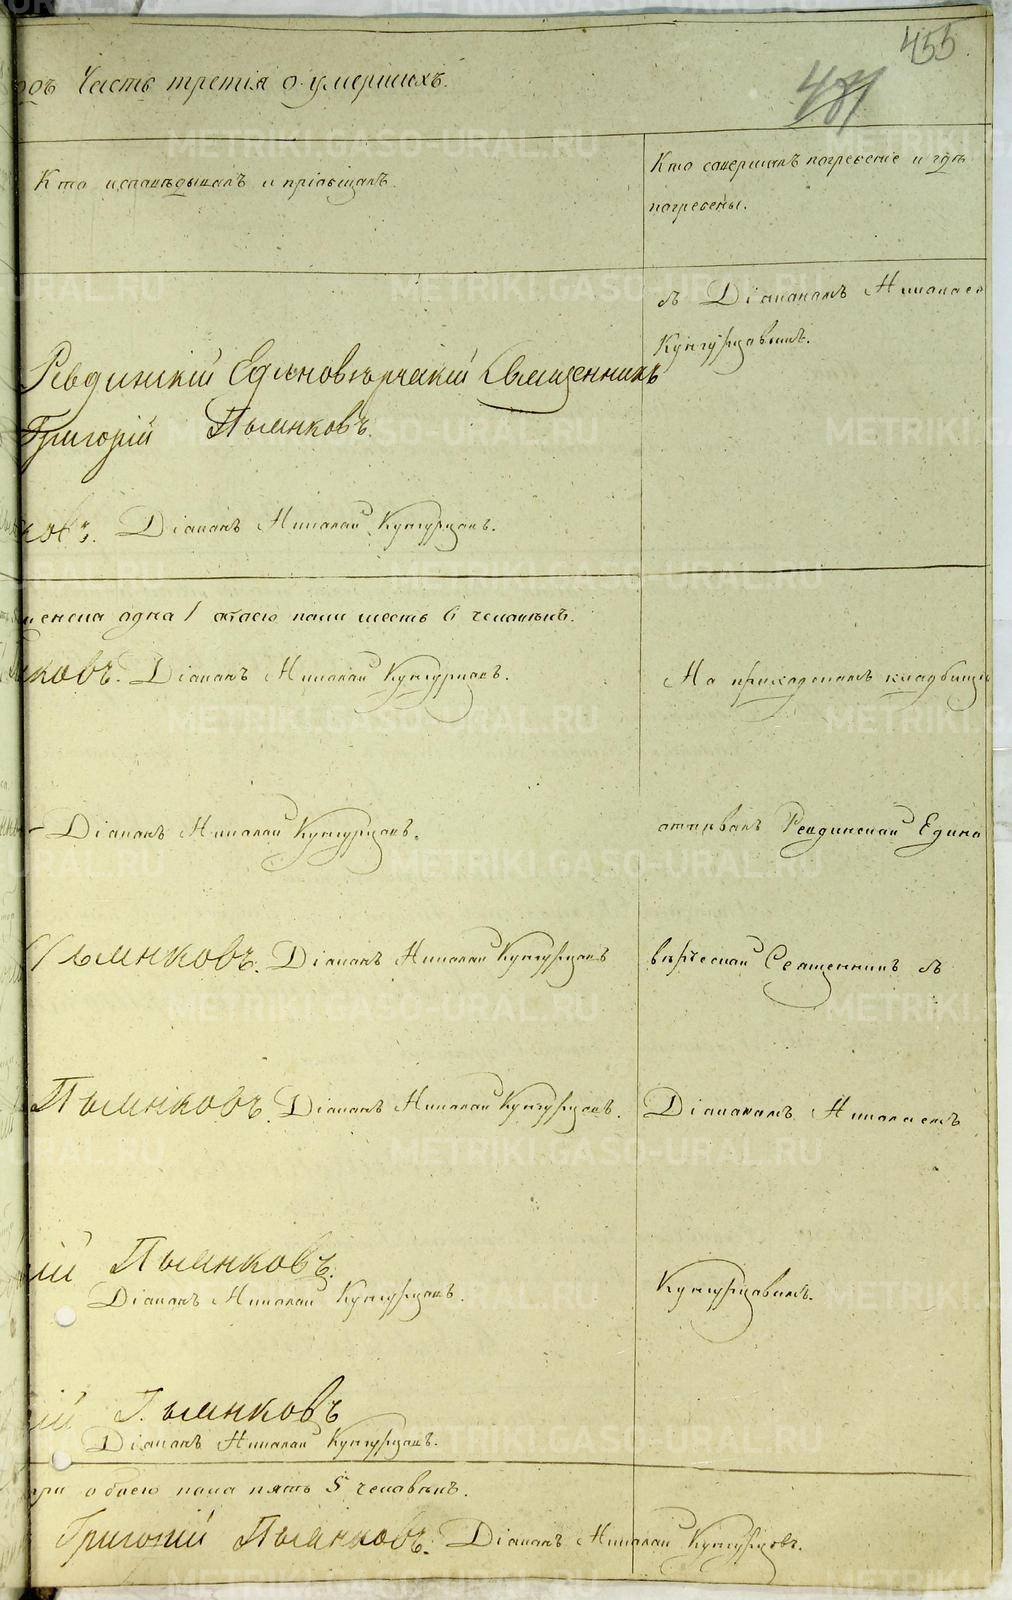 455
471
Часть третія о умершихъ.
Кто исповѣдывалъ и пріобщалъ.
Кто совершалъ погребеніе и гдѣ
погребены.
съ Діакономъ Николаем
Кунгурцовымъ.
Ревдинскій Единовѣрческій Священникъ
Григорій Пьянковъ
ковъ. Діаконъ Николай Кунгурцовъ.
женска одна 1 обоего пола шесть 6 человѣкъ.
нковъ. Діаконъ Николай Кунгурцовъ.
На приходскомъ кладбищѣ
Діаконъ Николай Кунгурцовъ.
отпѣвалъ Ревдинской Едино
Пьянковъ. Діаконъ Николай Кунгурцовъ
вѣрческой Священникъ съ
Пьянковъ. Діаконъ Николай Кунгурцовъ.
Діакономъ Николаемъ
ій Пьянковъ.
Діаконъ Николай Кунгурцовъ.
Кунгурцовымъ.
ій Пьянковъ
Діаконъ Николай Кунгурцовъ.
три обоего пола пять 5 человѣкъ.
Григорій Пьянковъ. Діаконъ Николай Кунгурцовъ.
METRIKI.GASO-URAL.RU